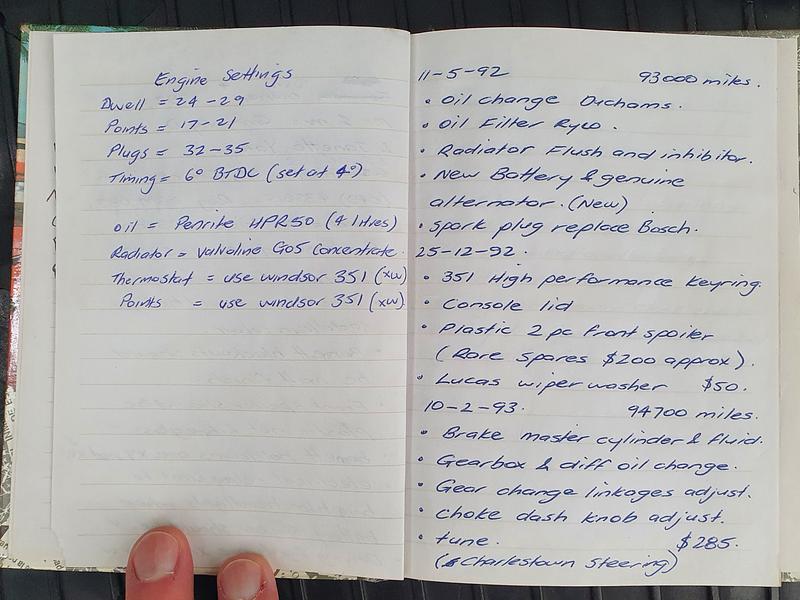 Engine Settings
Dwell = 24 - 29
Points = 17 - 21
Plugs = 32 - 35
Timing = 6° BTDC (set at 4°)
Oil = Penrite HPR50 (4 litres)
Radiator = Valvoline G05 Concentrate.
Thermostat = use windsor 351 (xw)
Points = use windsor 351 (xw)
11-5-92 93000 miles.
• Oil change Duchams.
• Oil Filter Ryco.
• Radiator Flush and inhibitor.
• New Battery & genuine
alternator. (New)
• Spark plug replace Bosch.
25-12-92.
• 351 High performance Keyring.
• Console lid
• Plastic 2 pc front spoiler
(Rare Spares $200 approx).
• Lucas wiper washer $50.
10-2-93. 94700 miles.
• Brake master cylinder & fluid.
• Gearbox & diff oil change.
• Gear change linkages adjust.
• Choke dash knob adjust.
• tune. $285.
(Charlestown Steering)